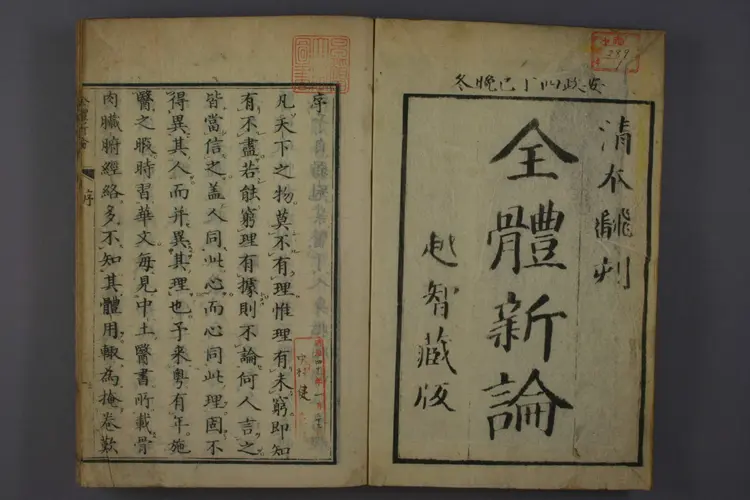 安政四丁巳晩冬
清本翻刻
全體新論
越智藏版
序
凡天下之物莫不有理惟理有未窮即知
有不盡若能窮理有據則不論何人言之
皆當信之盖人同此心而心同此理固不
得異其人而并異其理也予來粵有年施
醫之暇時習華文每見中土醫書所載骨
肉臟腑經絡多不知其體用輒為掩卷歎
全體新論
序